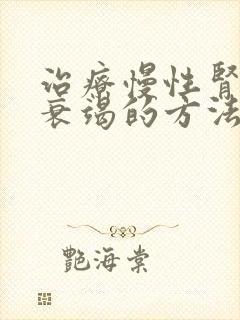 治療慢性腎
衰竭的方法
艷海棠